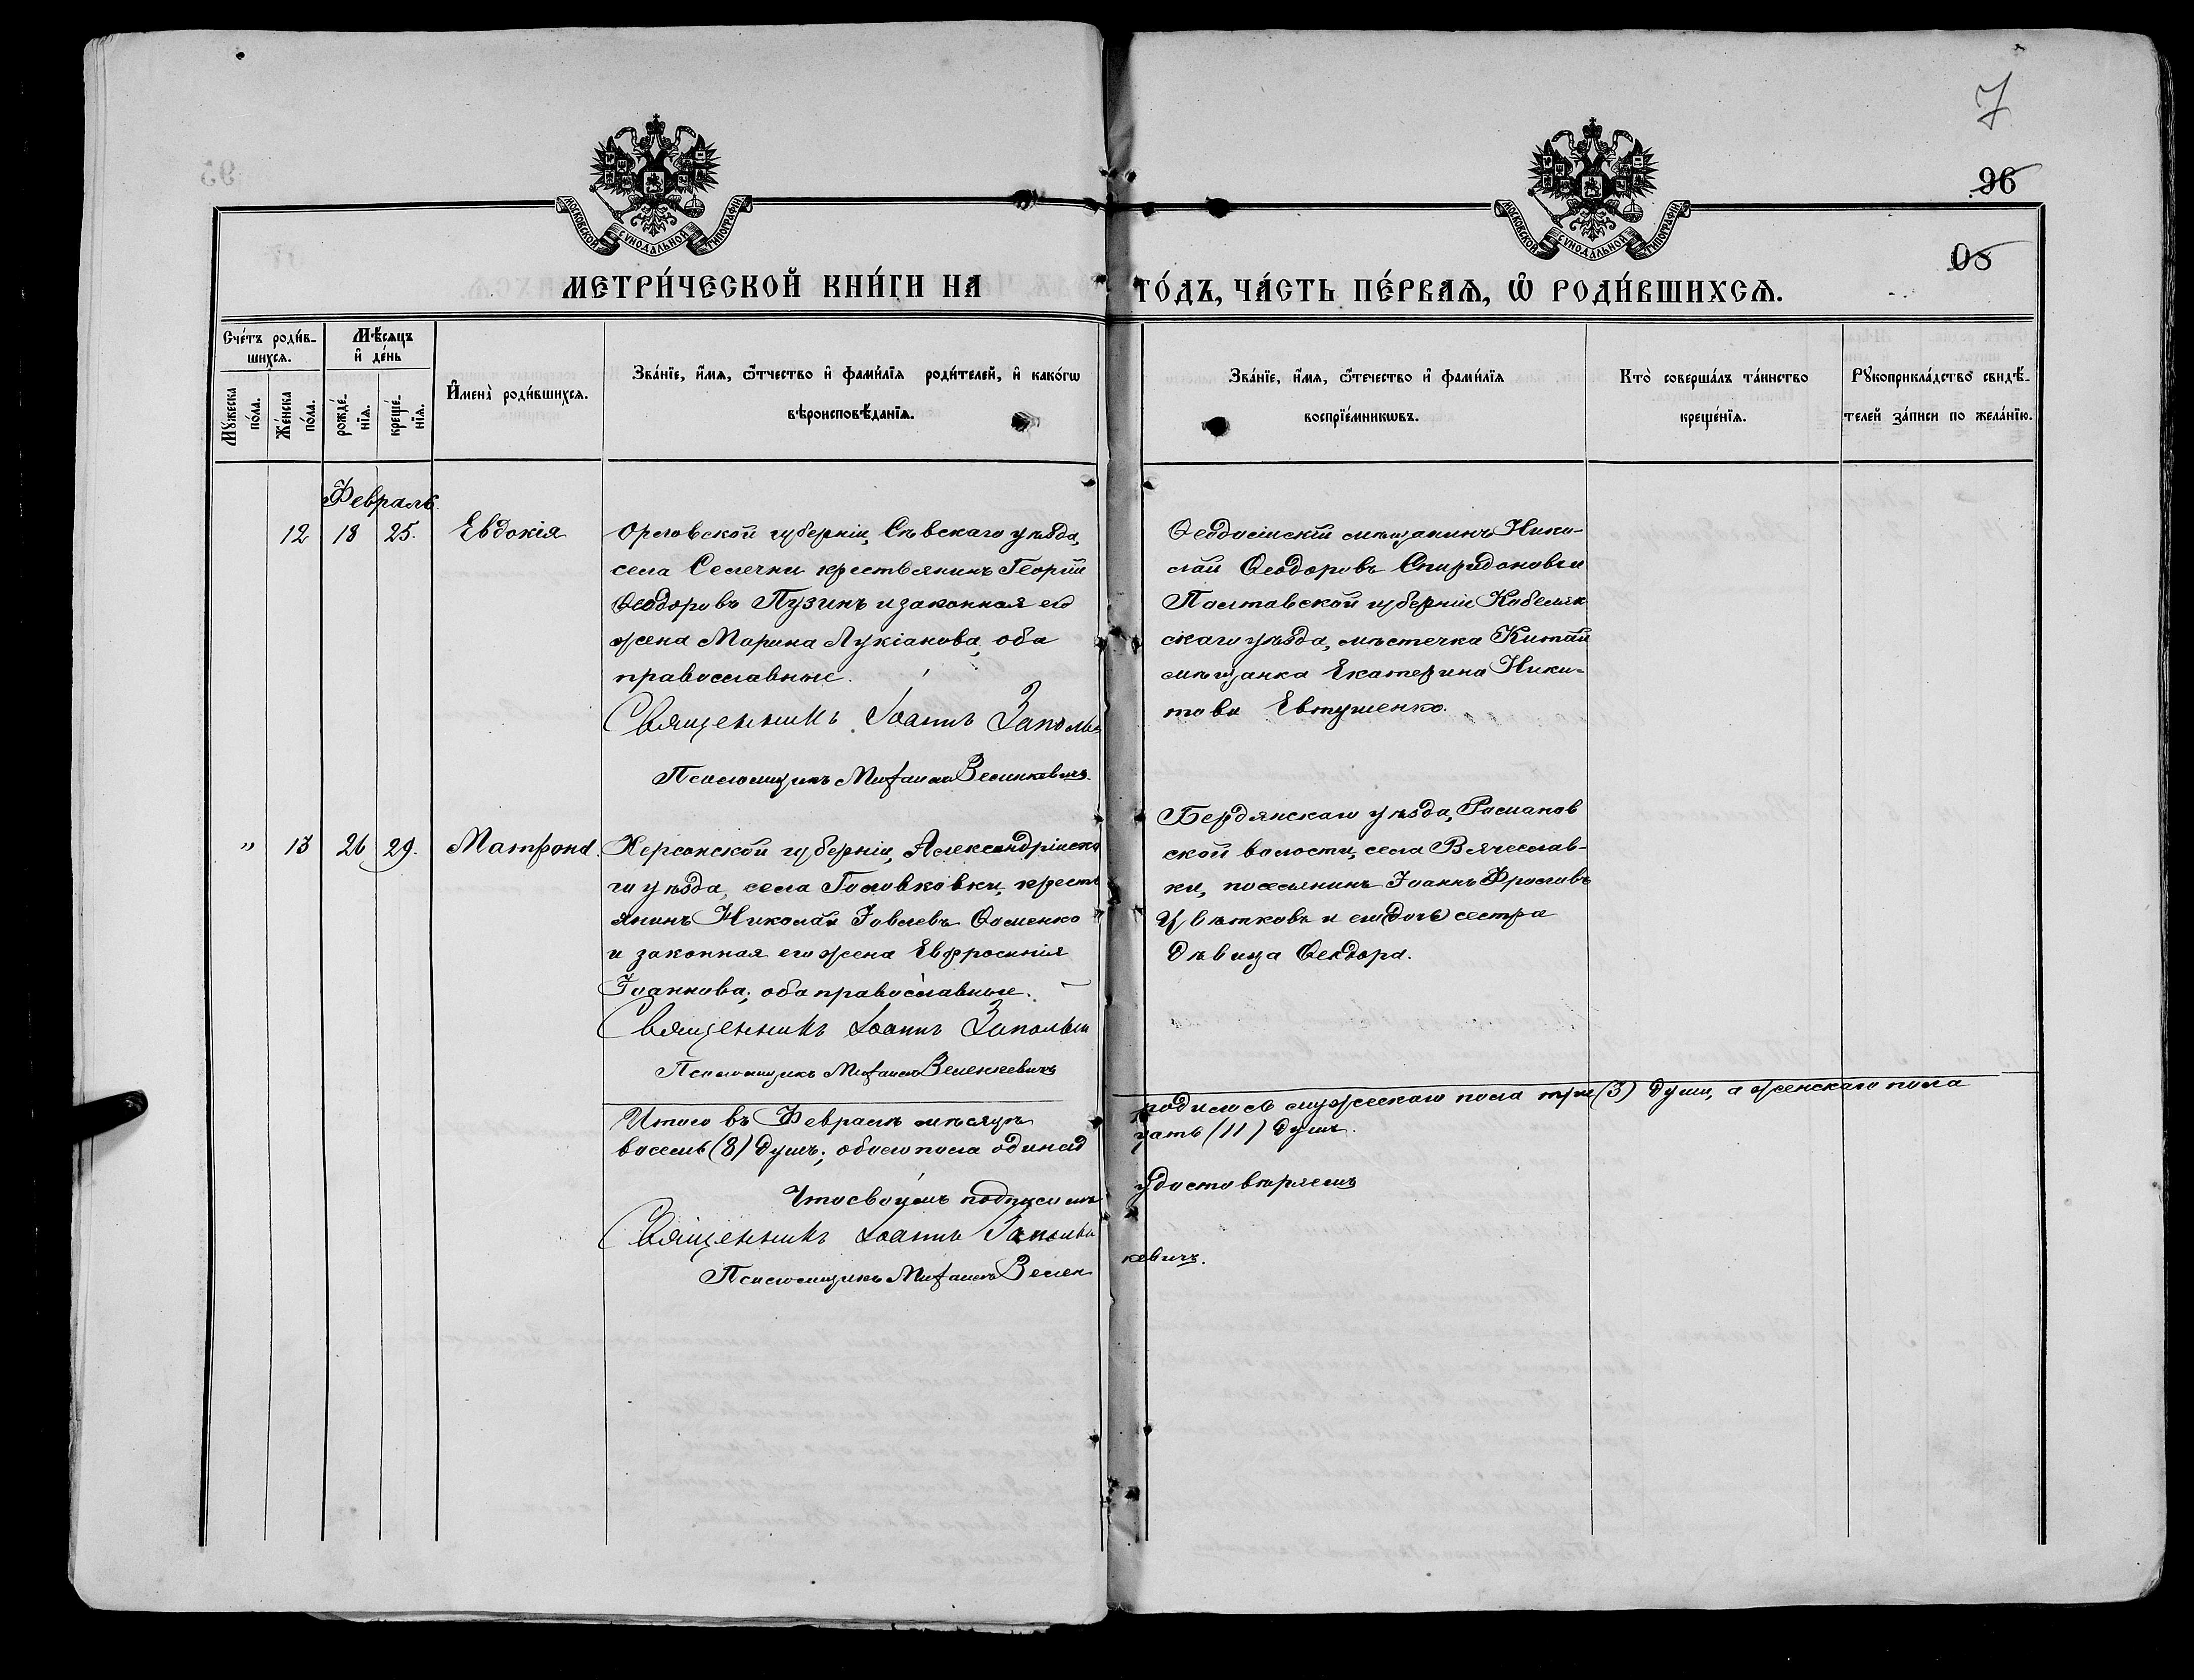 7
96
МОСКОВСКОЙ СѴНОДАЛЬНОЙ ТИПОГРАФІИ
МОСКОВСКОЙ СѴНОДАЛЬНОЙ ТИПОГРАФІИ
МЕТРИ́ЧЕСКОЙ КНИ́ГИ НА ГО́ДЪ, ЧА́СТЬ ПЕ́РВАѦ, Ѡ҆ РОДИ́ВШИХСѦ.
Сче́тъ роди́в-
шихсѧ.
Мѣ́сѧцъ
и҆ де́нь
Мꙋ́жеска
по́ла.
Же́нска
по́ла.
рожде́-
нїѧ.
креще́-
нїѧ.
И҆мена̀ роди́вшихсѧ.
Зва́нїе, и҆́мѧ, ѻ҆́тчество и҆ фами́лїѧ роди́телей, и҆ како́гѡ
вѣроисповѣ́данїѧ.
Зва́нїе, и҆́мѧ, ѻ҆́течество и҆ фами́лїѧ
воспрїе́мникѡвъ.
Кто̀ соверша́лъ та́инство
креще́нїѧ.
Рꙋкоприкла́дство свидѣ́-
телей за́писи по жела́нїю.
Февраль.
12 18 25. Евдокія
Орловской губерніи, Сѣвскаго уѣзда,
села Селечни крестьянинъ Георгій
Ѳеодоровъ Пузинъ и законная его
жена Марина Лукіанова, оба
православные.
Священникъ Іоаннъ Заполь
Псаломщикъ Михаилъ Веленкевичъ.
Ѳеодосійскій мѣщанинъ Нико-
лай Ѳеодоровъ Спиридоновъ и
Полтавской губерніи Кобеляк
скаго уѣзда, мѣстечка Китай
мѣщанка Екатерина Ники-
това Евтушенко.
" 13 26 29. Матрона.
Херсонской губерніи, Александрійска
го уѣзда, села Головковки, кресть
янинъ Николай Іовлевъ Ѳоменко
и законная его жена Евфросинія
Іоаннова; оба православные.
Священникъ Іоаннъ Заполь
Псаломщикъ Михаилъ Веленкевичъ
Бердянскаго уѣзда, Романов
ской волости, села Вячеслав-
ки, поселянинъ Іоаннъ Фроловъ
Цвѣтковъ и его (дочь) сестра
дѣвица Ѳеодора.
Итого въ Февралѣ мѣсяцѣ родилось мужескаго пола три (3) души, а женскаго пола
восемь (8) душъ; обоего пола одинад цать (11) душъ.
Что своимъ подписомъ удостовѣряемъ
Священникъ Іоаннъ Заполь
Псаломщикъ Михаилъ Велен кевичъ.